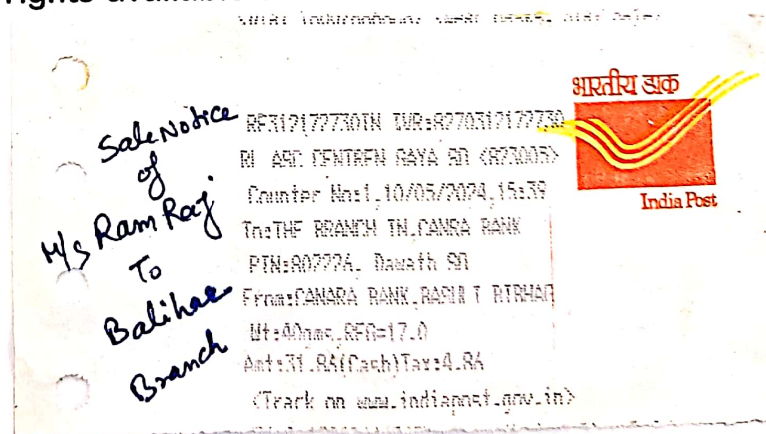 rights
Sale Notice
of
M/s Ram Raj
To
Balihar
Branch
RF312177730IN IVR:8270312177730
RL ARC CENTREN GAYA SO <823005>
Counter No:1,10/05/2024,15:39
To:THE BRANCH IN,CANRA BANK
PIN:802226, Dawath SO
From:CANARA BANK,
Wt:40gms,REG=17.0
Amt:31.84(Cash)Tax:4.84
<Track on www.indiapost.gov.in>
भारतीय डाक
India Post